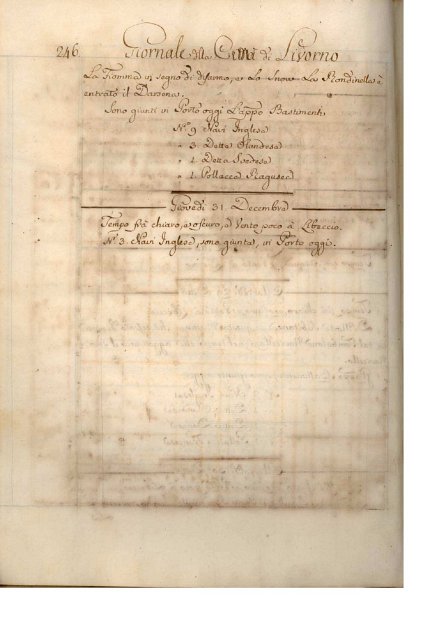 246 Giornale della Città di Livorno
La Fiamma in segno di disarmo, per La Rondinella è
entrato il Darsena.
Sono giunti in Porto oggi L'appo Bastimenti,
N.º 9 Navi Inglese
" 3. Dette Olandese
" 1. Detta Svedese
" 1. Pollacca Ragusea
Giovedì 31. Decembre
Tempo frà chiaro, e oscuro, e Vento poco à Libeccio.
N.º 3. Navi Inglese, sono giunte, in Porto oggi.